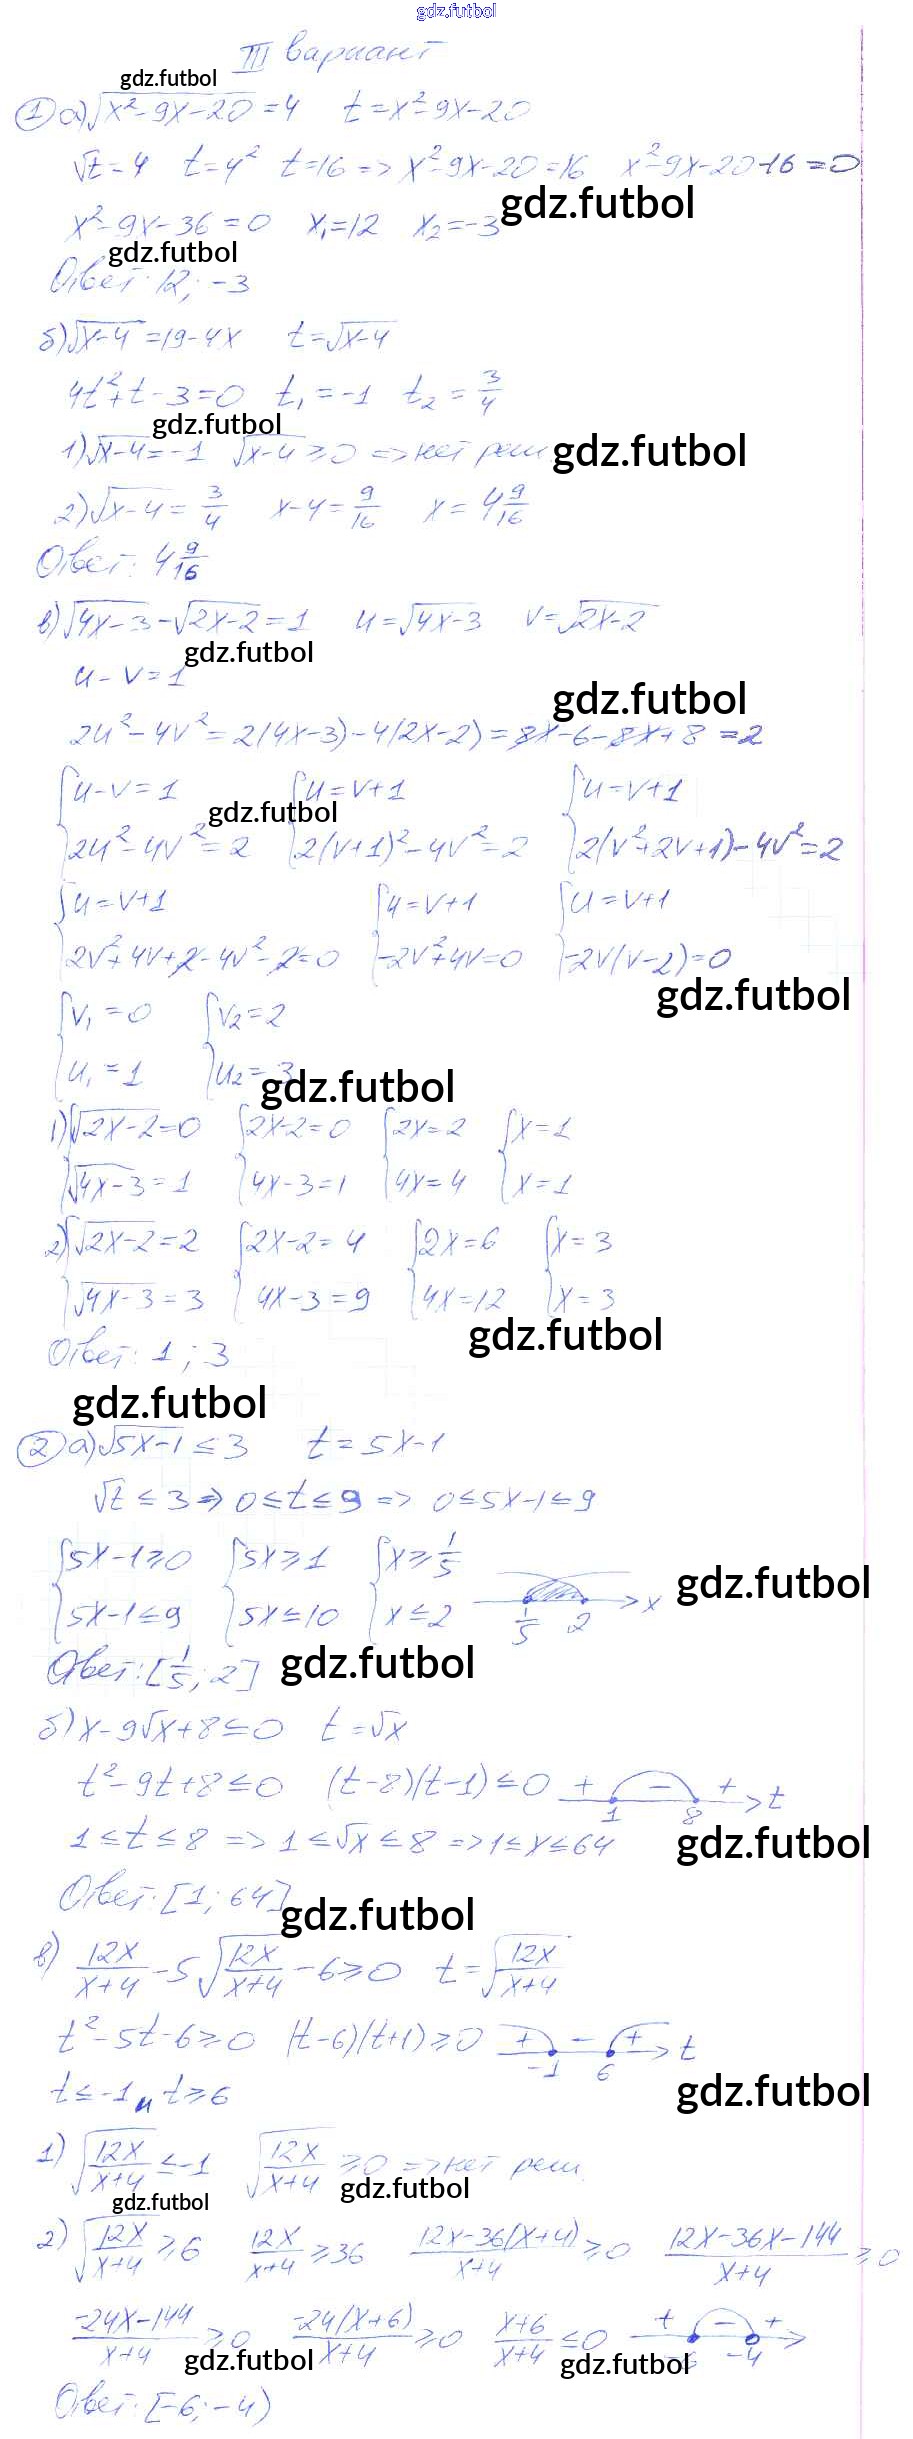 gdz.futbol
III вариант
gdz.futbol
1 а) √(x²-9x-20) = 4 t = x²-9x-20
√t = 4 t = 4² t = 16 => x²-9x-20 = 16 x²-9x-20-16 = 0
gdz.futbol
x²-9x-36 = 0 x₁ = 12 x₂ = -3
gdz.futbol
Ответ: 12; -3
б) √(x-4) = 19-4x t = √(x-4)
4t²+t-3 = 0 t₁ = -1 t₂ = 3/4
gdz.futbol
1) √(x-4) = -1 √(x-4) ≥ 0 => нет реш
gdz.futbol
2) √(x-4) = 3/4 x-4 = 9/16 x = 4 9/16
Ответ: 4 9/16
в) √(4x-3) - √(2x-2) = 1 u = √(4x-3) v = √(2x-2)
gdz.futbol
u-v = 1
gdz.futbol
2u²-4v² = 2(4x-3)-4(2x-2) = 8x-6-8x+8 = 2
{u-v = 1 {u = v+1 {u = v+1
gdz.futbol
{2u²-4v² = 2 {2(v+1)²-4v² = 2 {2(v²+2v+1)-4v² = 2
{u = v+1 {u = v+1 {u = v+1
{2v²+4v+2-4v²-2 = 0 {-2v²+4v = 0 {-2v(v-2) = 0
gdz.futbol
{v₁ = 0 {v₂ = 2
{u₁ = 1 {u₂ = 3
gdz.futbol
1) {√(2x-2) = 0 {2x-2 = 0 {2x = 2 {x = 1
{√(4x-3) = 1 {4x-3 = 1 {4x = 4 {x = 1
2) {√(2x-2) = 2 {2x-2 = 4 {2x = 6 {x = 3
{√(4x-3) = 3 {4x-3 = 9 {4x = 12 {x = 3
gdz.futbol
Ответ: 1; 3
gdz.futbol
2 а) √(5x-1) ≤ 3 t = 5x-1
√t ≤ 3 => 0 ≤ t ≤ 9 => 0 ≤ 5x-1 ≤ 9
{5x-1 ≥ 0 {5x ≥ 1 {x ≥ 1/5
gdz.futbol
{5x-1 ≤ 9 {5x ≤ 10 {x ≤ 2 1/5 2 x
Ответ: [1/5; 2]
gdz.futbol
б) x-9√x+8 ≤ 0 t = √x
t²-9t+8 ≤ 0 (t-8)(t-1) ≤ 0 + - + 1 8 t
1 ≤ t ≤ 8 => 1 ≤ √x ≤ 8 => 1 ≤ x ≤ 64
gdz.futbol
Ответ: [1; 64]
gdz.futbol
в) 12x/(x+4) - 5√(12x/(x+4)) - 6 ≥ 0 t = √(12x/(x+4))
t²-5t-6 ≥ 0 (t-6)(t+1) ≥ 0 + - + -1 6 t
gdz.futbol
t ≤ -1 и t ≥ 6
1) √(12x/(x+4)) ≤ -1 √(12x/(x+4)) ≥ 0 => нет реш.
gdz.futbol
gdz.futbol
2) √(12x/(x+4)) ≥ 6 12x/(x+4) ≥ 36 (12x-36(x+4))/(x+4) ≥ 0 (12x-36x-144)/(x+4) ≥ 0
(-24x-144)/(x+4) ≥ 0 -24(x+6)/(x+4) ≥ 0 (x+6)/(x+4) ≤ 0 + - + -6 -4
gdz.futbol
gdz.futbol
Ответ: [-6; -4)